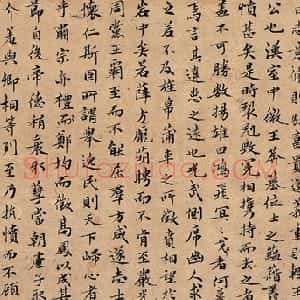 公也漢室中微王莽篡位士之蘊藉義
憤甚矣是時裂冠毀冕相攜持而去之
蓋不可勝數揚雄曰鴻飛冥冥弋者何篡
焉言其違患之遠也光武側席幽人求
若不及旌帛蒲車之所徵賁相望
岩中矣若薛方逢萌聘而不肯至嚴光
周黨王霸至而不能屈群方咸遂志士
懷仁斯固所謂舉逸民則天下歸心者
乎肅宗亦禮鄭均而徵高鳳以成其
節自後帝德稍衰邪孽當朝處子耿
介羞與卿相等列至乃抗憤而不顧